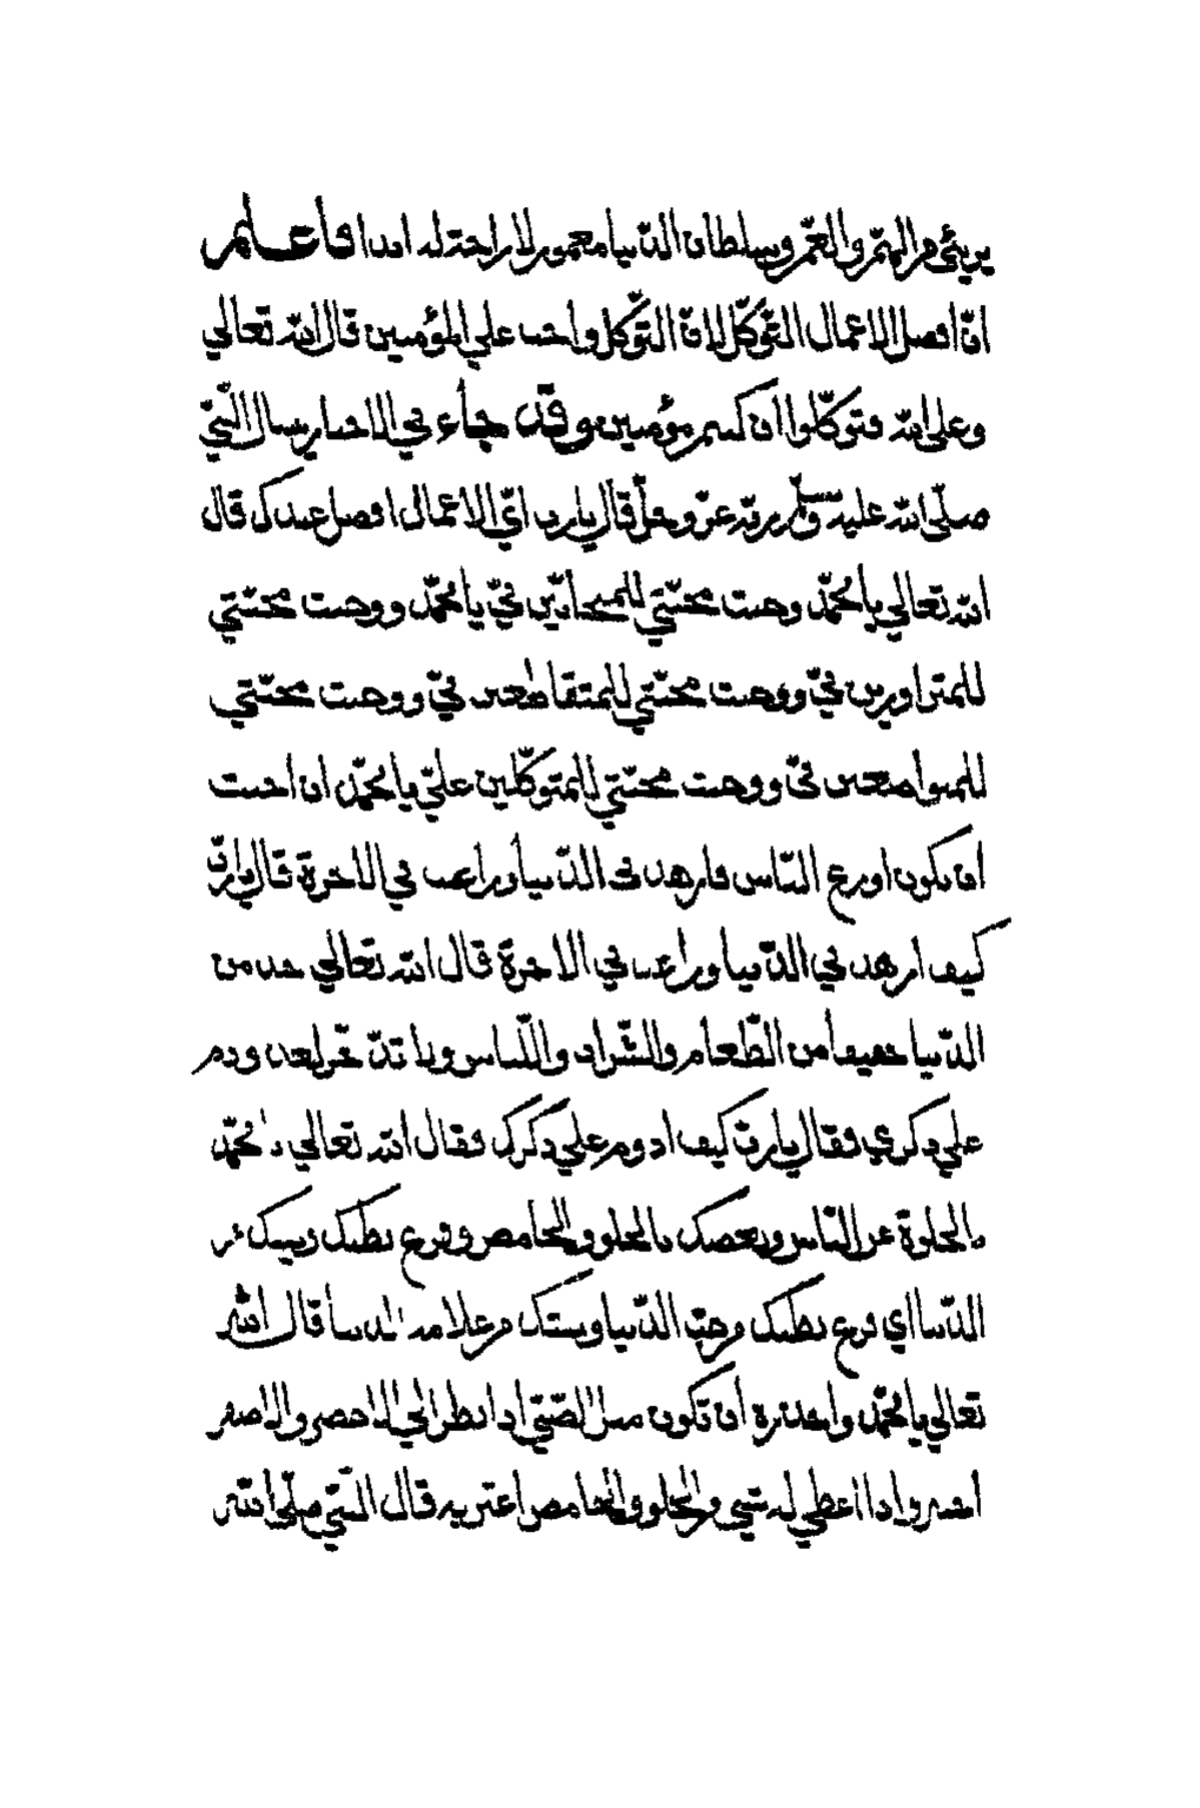 يرىئى من الهمّ والغمّ وسلطان الدّنيا مغموم لا راحة له ابدا فأعلم
انّ افضل الاعمال التّوكّل لانّ التّوكل واجب علي المؤمنين قال الله تعالي
وعلي الله فتوكّلوا ان كنتم مؤمنين وقد جاء في الاخبار يسال النّبيّ
صلّي الله عليه وسلّم ربّه عزّ وجلّ قال يا رب ايّ الاعمال افضل عندك قال
الله تعالي يا محمّد وجبت محبّتي للمتحابّين فيّ يا محمّد ووجبت محبّتي
للمتزاورين فيّ ووجبت محبّتي للمتقاطعين فيّ ووجبت محبّتي
للمتواضعين فيّ ووجبت محبّتي للمتوكّلين عليّ يا محمّد ان احببت
ان تكون اورع النّاس فازهد في الدّنيا وراغب في الاخرة قال يا ربّ
كيف ازهد في الدّنيا وراغب في الاخرة قال الله تعالي خد من
الدّنيا خفيفا من الطّعام والشّراب واللّباس ولا تدّخّر لغد ودم
علي ذكري فقال يا ربّ كيف ادوم علي ذكرك فقال الله تعالي يا محمّد
بالخلوة عن النّاس وبغضك بالحلو والحامض وفرغ بطنك وبيتك من
الدّنيا اي فرغ بطنك من حبّ الدّنيا وبيتك من علامة الدنيا قال الله
تعالي يا محمّد واحذره ان تكون مثل الصّبيّ إذا نظر الي الاخضر والاصفر
احبّه واذا اعطي له شيي من الحلو والحامض اغترّ به قال النّبيّ صلّي الله